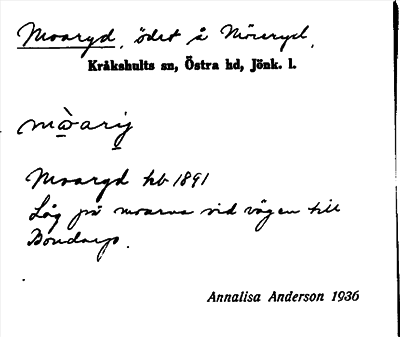 Moaryd, ödet å Möreryd,
Kråkshults sn, Östra hd, Jönk. l.
mò̯arij
Moaryd hb 1891
Låg på moarna vid vägen till
Bondarp.
Annalisa Anderson 1936